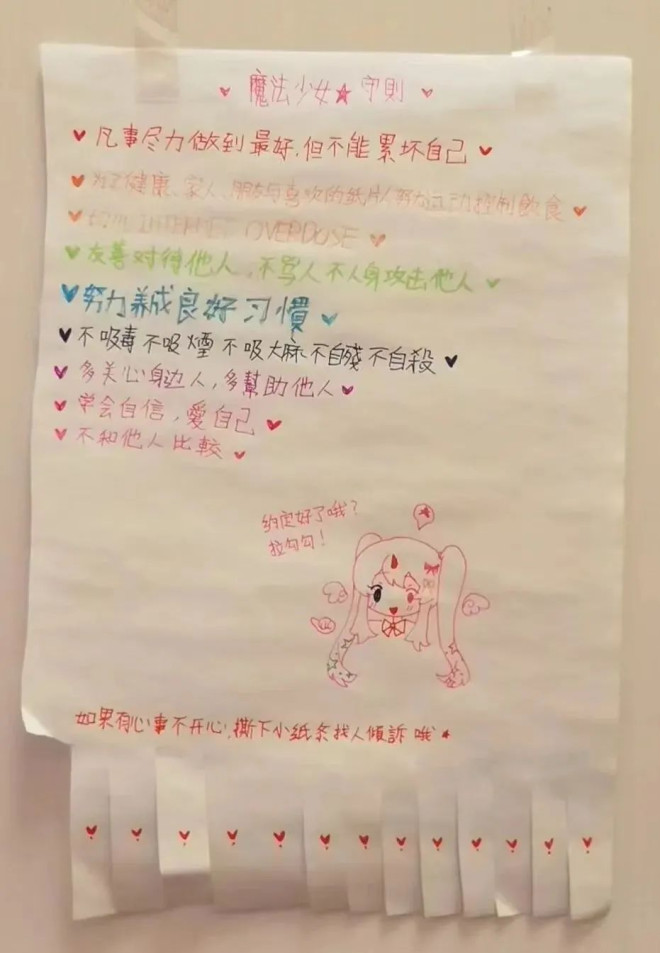 魔法少女★守則
凡事尽力做到最好,但不能累坏自己
为了健康、家人、朋友与喜欢的紙片人努力运动控制飲食
切勿INTERNET OVERDOSE
友善对待他人,不骂人不人身攻击他人
努力养成良好习慣
不吸毒不吸煙不吸大麻不自殘不自殺
多关心身边人,多幫助他人
学会自信,愛自己
不和他人比較
約定好了哦?
拉勾勾!
如果有心事不开心,撕下小紙条找人傾訴哦★